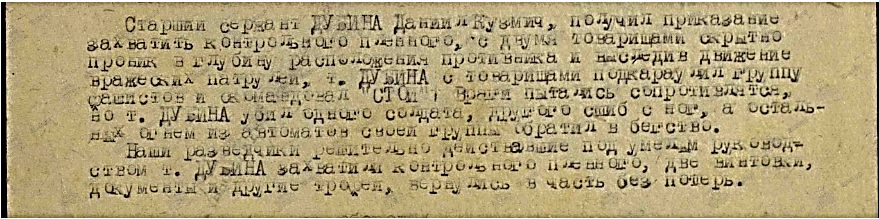 Старший сержант ДУБИНА Даниил Кузмич, получил приказание
захватить контрольного пленного, с двумя товарищами скрытно
проник в глубину расположения противника и выследив движение
вражеских патрулей, т. ДУБИНА с товарищами подкараулил группу
фашистов и скомандовал "СТОЙ"! Враги пытались сопротивлятся,
но т. ДУБИНА убил одного солдата, другого сшиб с ног, а осталь-
ных огнем из автоматов своей группы обратил в бегство.
Наши разведчики решительно действавшие под умелым руковод-
ством т. ДУБИНА захватили контрольного пленного, две винтовки,
документы и другие трофеи, вернулись в часть без потерь.